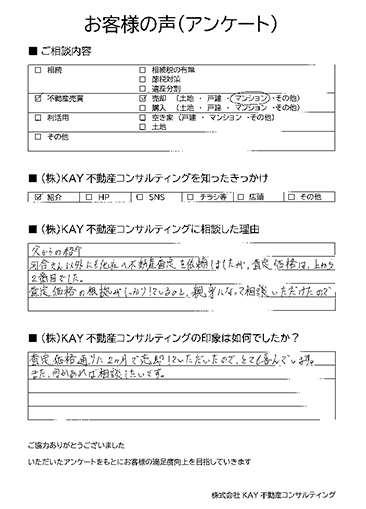 お客様の声(アンケート)
■ ご相談内容
□ 相続 □ 相続税の有無
□ 節税対策
□ 遺産分割
☑ 不動産売買 ☑ 売却 (土地 ・ 戸建 ・ マンション ・その他)
□ 購入 (土地 ・ 戸建 ・ マンション ・その他)
□ 利活用 □ 空き家 (戸建 ・ マンション ・その他)
□ 土地
□ その他
■ (株)KAY不動産コンサルティングを知ったきっかけ
☑ 紹介 □ HP □ SNS □ チラシ等 □ 店頭 □ その他
■ (株)KAY不動産コンサルティングに相談した理由
父からの紹介
河合さん以外にも他社へ不動産査定を依頼しましたが、査定価格は、上から
2番目でした。
査定価格の根拠がしっかりしているのと、親身になって相談いただけたので
■ (株)KAY不動産コンサルティングの印象は如何でしたか?
査定価格通りに2ヶ月で売却していただいたので、とても喜んでいます。
また、何かあれば相談したいです。
ご協力ありがとうございました
いただいたアンケートをもとにお客様の満足度向上を目指していきます
株式会社 KAY 不動産コンサルティング